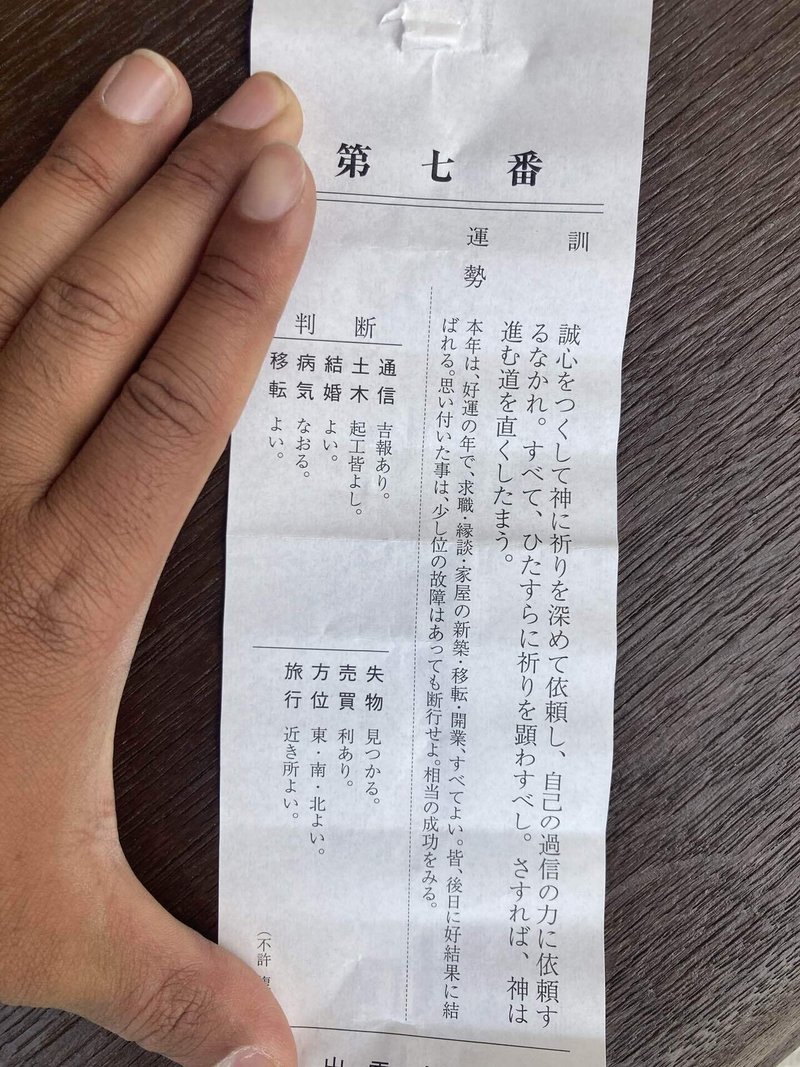 第七番
訓
誠心をつくして神に祈りを深めて依頼し、自己の過信の力に依頼す
るなかれ。すべて、ひたすらに祈りを顕わすべし。さすれば、神は
進む道を直くしたまう。
運勢
本年は、好運の年で、求職・縁談・家屋の新築・移転・開業、すべてよい。皆、後日に好結果に結
ばれる。思い付いた事は、少し位の故障はあっても断行せよ。相当の成功をみる。
判断
通信 吉報あり。
土木 起工皆よし。
結婚 よい。
病気 なおる。
移転 よい。
失物 見つかる。
売買 利あり。
方位 東・南・北よい。
旅行 近き所よい。
(不許
出雲